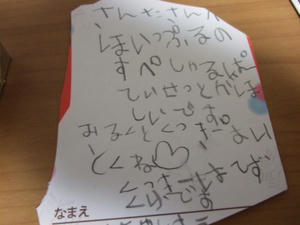 さんたさんへ
ほいっぷるの
すぺしゃるぱ
てぃせっとがほ
しいです
みるくとくっきーよい
とくね♡
くっきーはてづ
くりです
なまえ